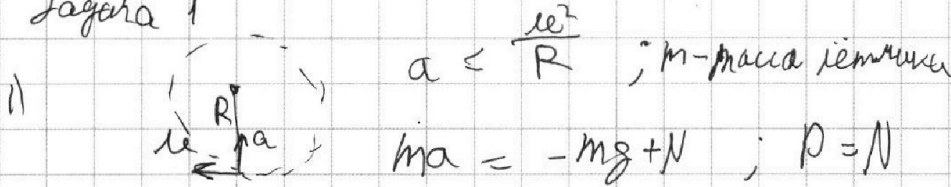 Задача 1
1) a ≤ u²/R ; m-масса лётчика
R u a
ma = -mg+N ; P=N